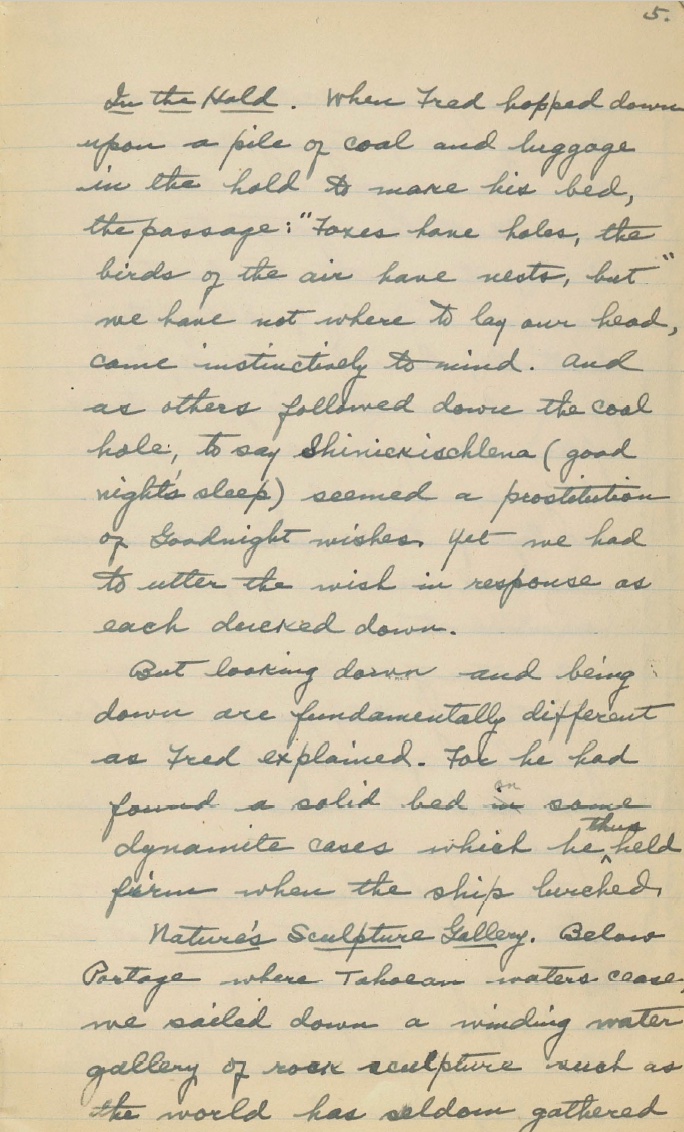 5.
In the Hold. When Fred hopped down
upon a pile of coal and luggage
in the hold to make his bed,
the passage: "Foxes have holes, the
birds of the air have nests, but"
we have not where to lay our head,
came instinctively to mind. And
as others followed down the coal
hole, to say Shinickischlena (good
night's sleep) seemed a prostitution
of Goodnight wishes. Yet we had
to utter the wish in response as
each ducked down.
But looking down and being
down are fundamentally different
as Fred explained. For he had
found a solid bed on some
dynamite cases which he thus held
firm when the ship lurched.
Nature's Sculpture Gallery. Below
Portage where Tahoean waters cease,
we sailed down a winding water
gallery of rock sculpture such as
the world has seldom gathered